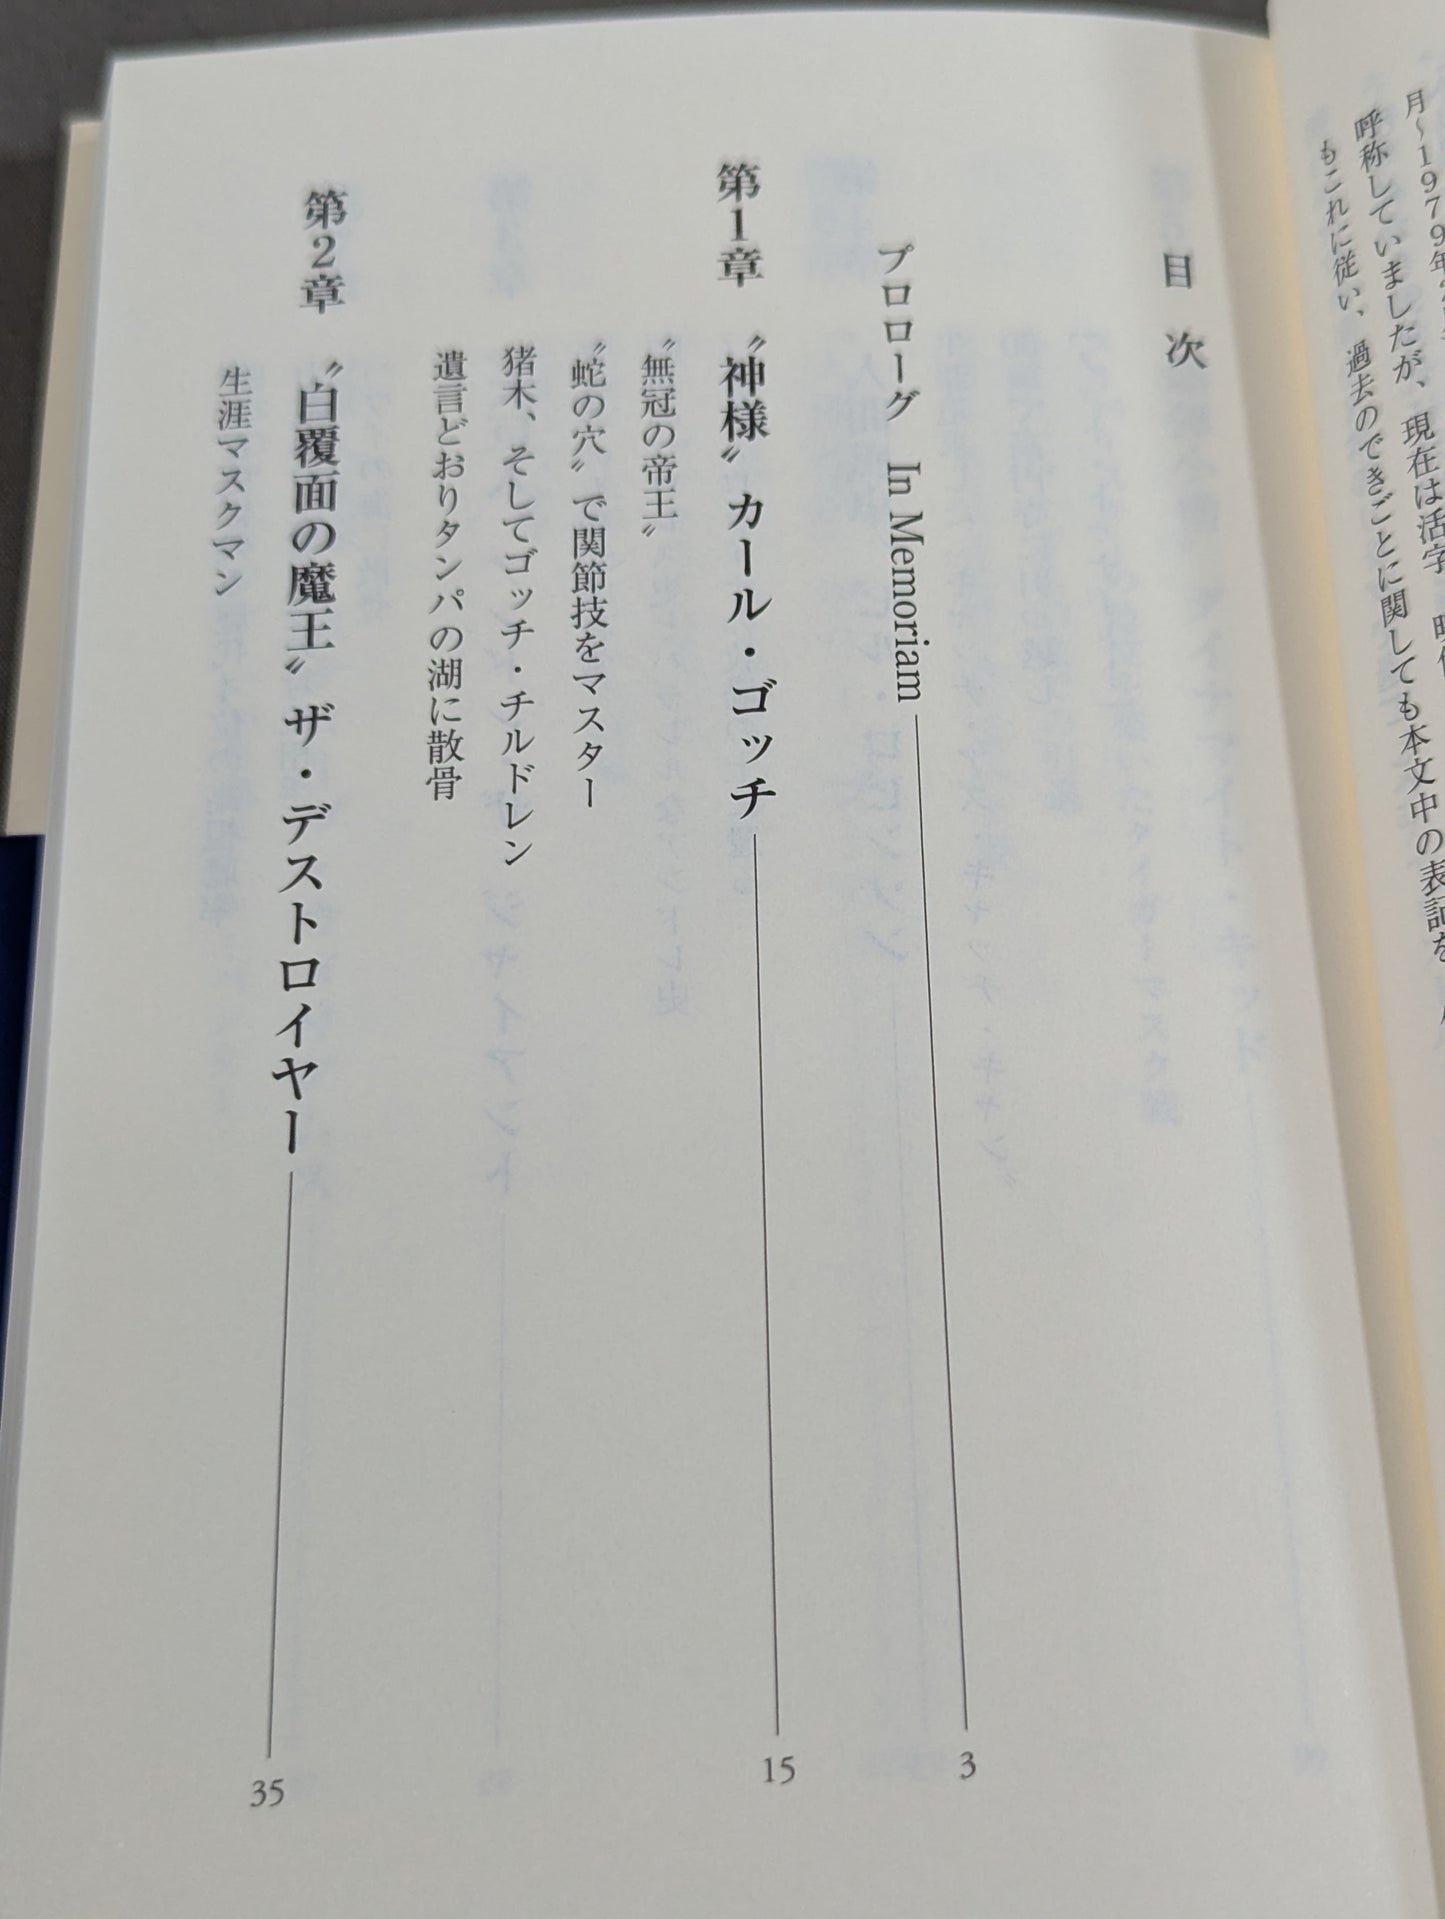 呼称していましたが、現在は活字
もこれに従い、過去のできごとに関しても本文中の表記を
目次
プロローグ In Memoriam 3
第1章 〝神様〟カール・ゴッチ 15
〝無冠の帝王〟
〝蛇の穴〟で関節技をマスター
猪木、そしてゴッチ・チルドレン
遺言どおりタンパの湖に散骨
第2章 〝白覆面の魔王〟ザ・デストロイヤー 35
生涯マスクマン